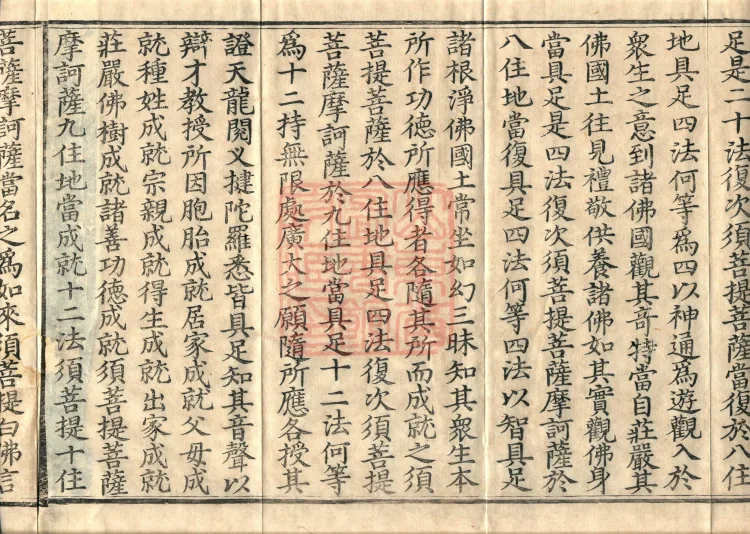 足是二十法復次須菩提菩薩當復於八住
地具足四法何等爲四以神通爲遊觀入於
衆生之意到諸佛國觀其奇特當自莊嚴其
佛國土往見禮敬供養諸佛如其實觀佛身
當具足是四法復次須菩提菩薩摩訶薩於
八住地當復具足四法何等四法以智具足
諸根淨佛國土常坐如幻三昧知其衆生本
所作功德所應得者各隨其所而成就之須
菩提菩薩於八住地具足四法復次須菩提
菩薩摩訶薩於九住地當具足十二法何等
爲十二持無限處廣大之願隨所應各授其
證天龍閱叉揵陀羅悉皆具足知其音聲以
辯才教授所因胞胎成就居家成就父母成
就種姓成就宗親成就得生成就出家成就
莊嚴佛樹成就諸善功德成就須菩提菩薩
摩訶薩九住地當成就十二法須菩提十住
菩薩摩訶薩當名之爲如來須菩提白佛言